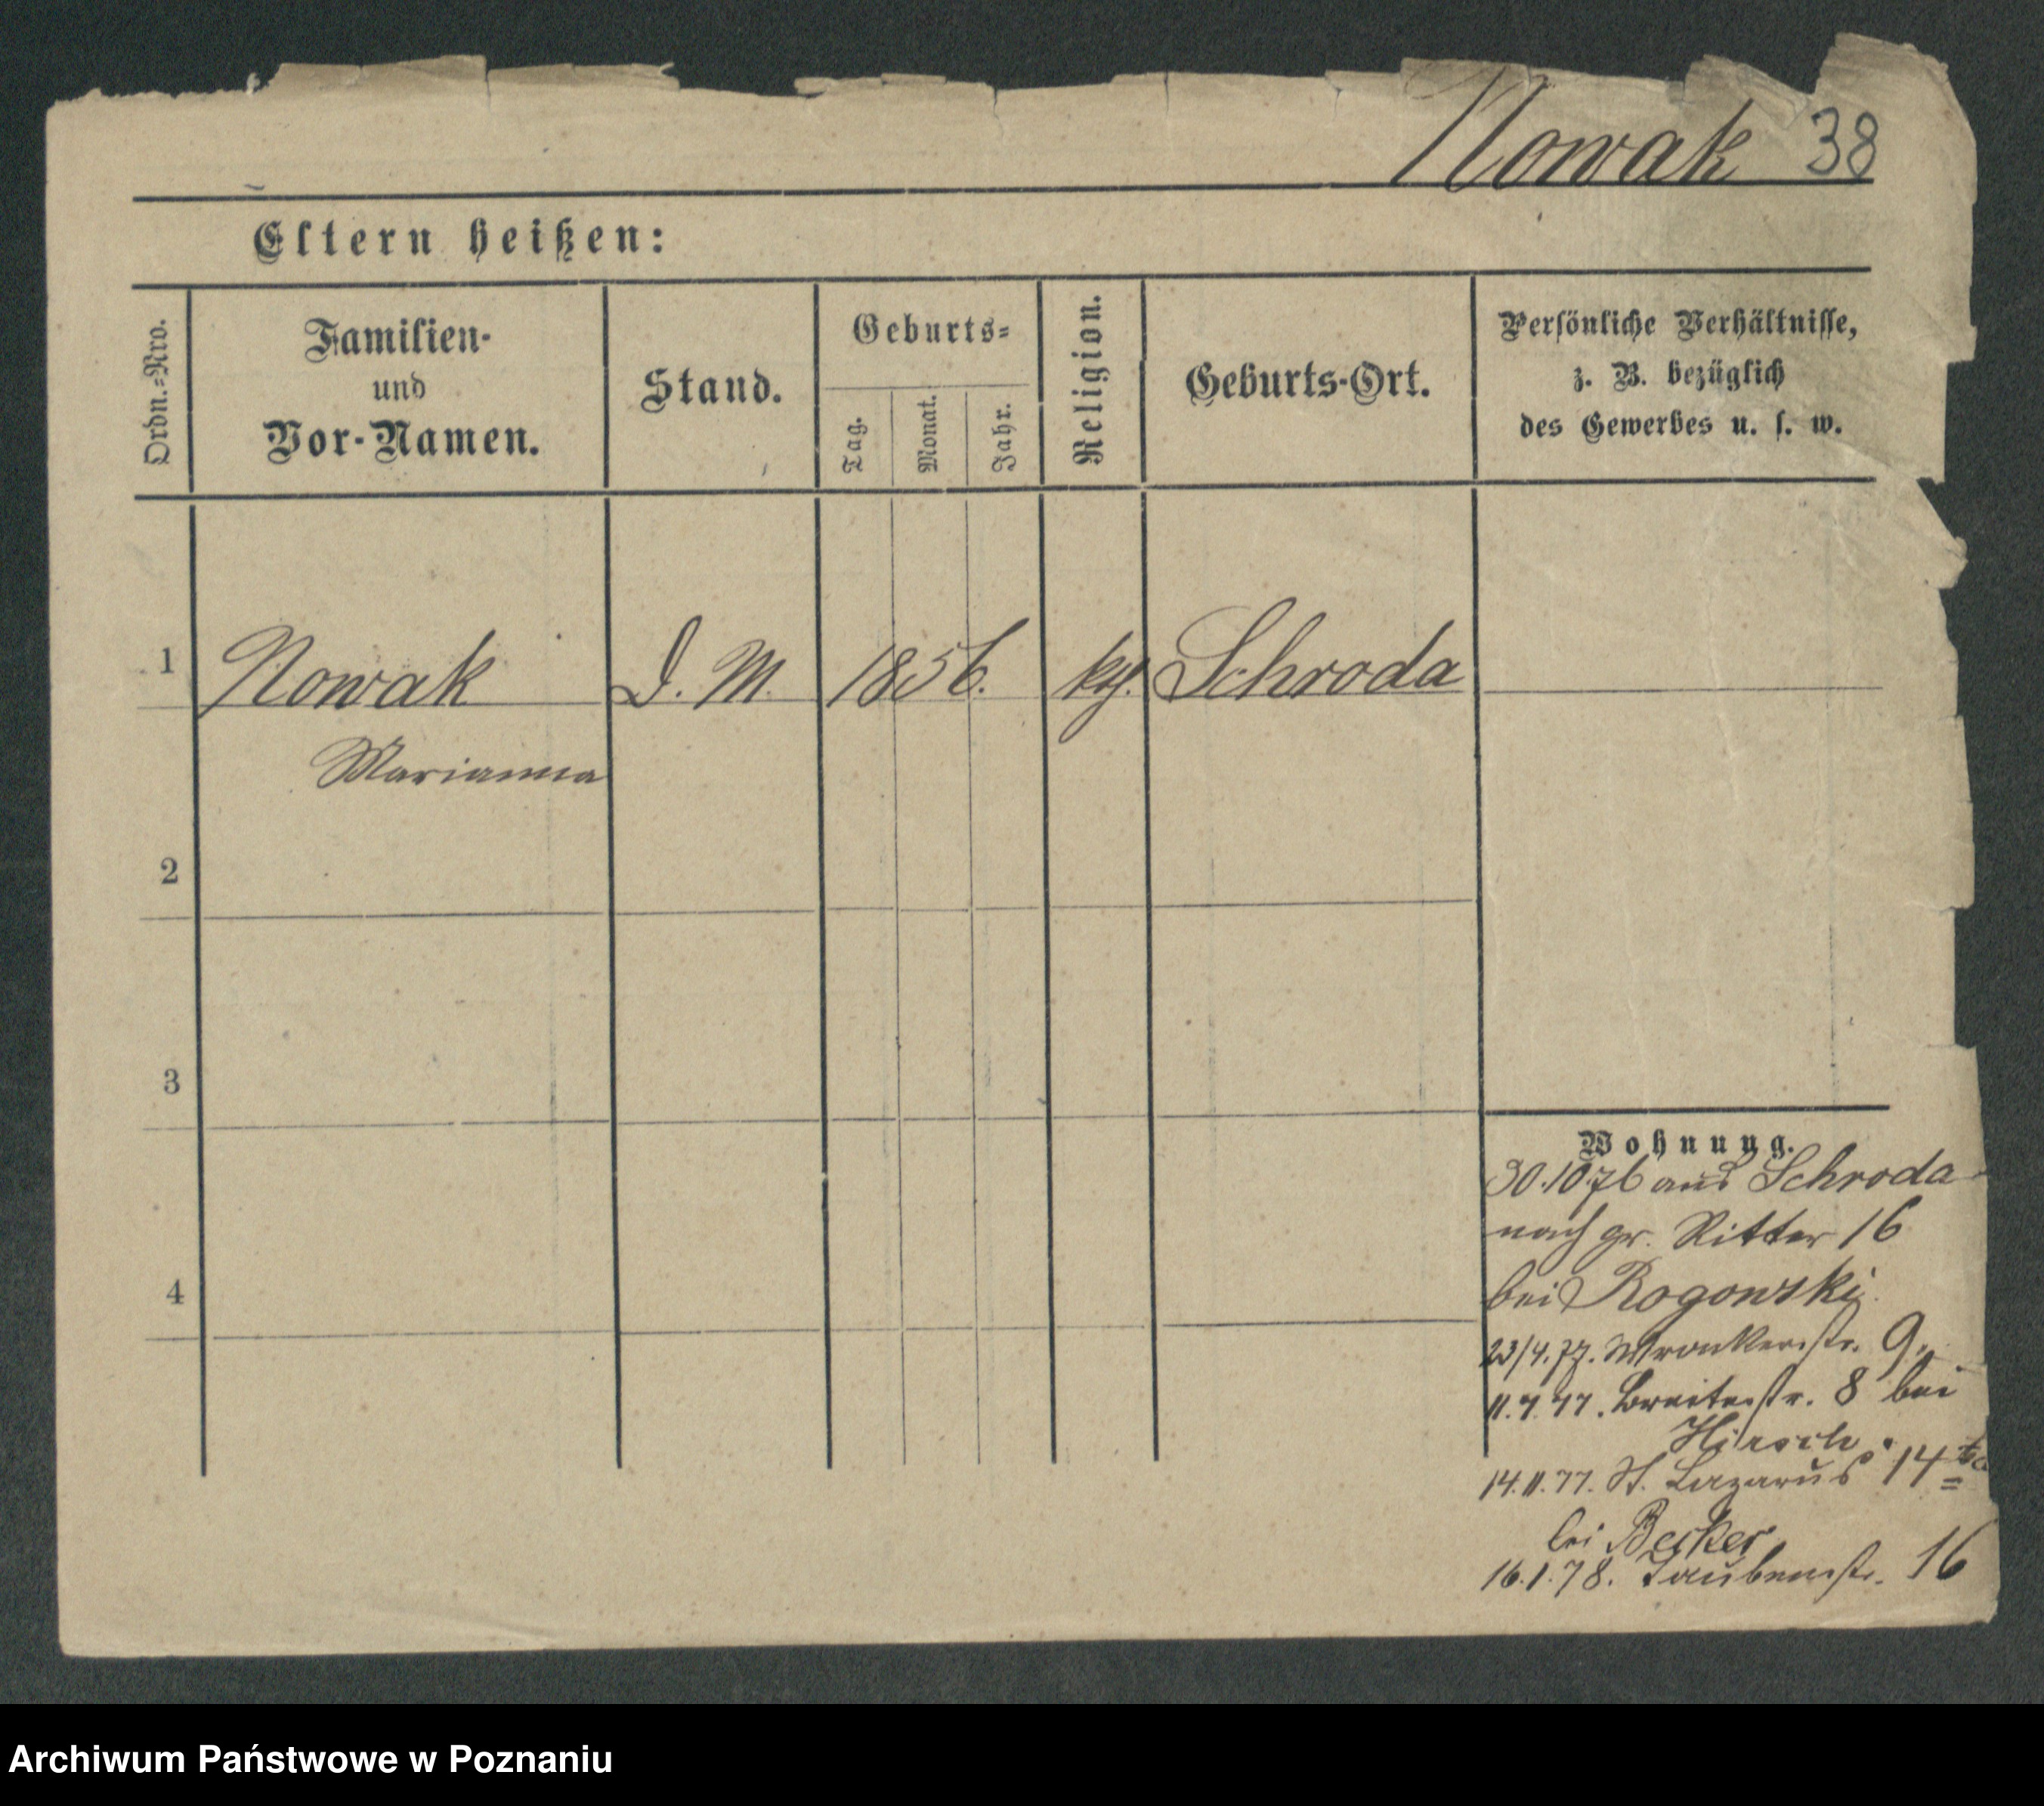 Nowak 38
Eltern heißen:
Ordn.=Nro.
Familien-
und
Vor-Namen.
Stand.
Geburts=
Tag.
Monat.
Jahr.
Religion.
Geburts-Ort.
Persönliche Verhältnisse,
z. B. bezüglich
des Gewerbes u. s. w.
1 Nowak D. M. 1856. Schroda
Marianna
2
3
4
Wohnung.
30.10.76 aus Schroda
nach gr. Ritter 16
bei Rogowski.
23/4.77. Wronkerstr. 9.
11.7.77. Breitestr. 8 bei
Hirsch.
14.11.77. St. Lazarus 14
bei Becker
16.1.78. Taubenstr. 16
Archiwum Państwowe w Poznaniu